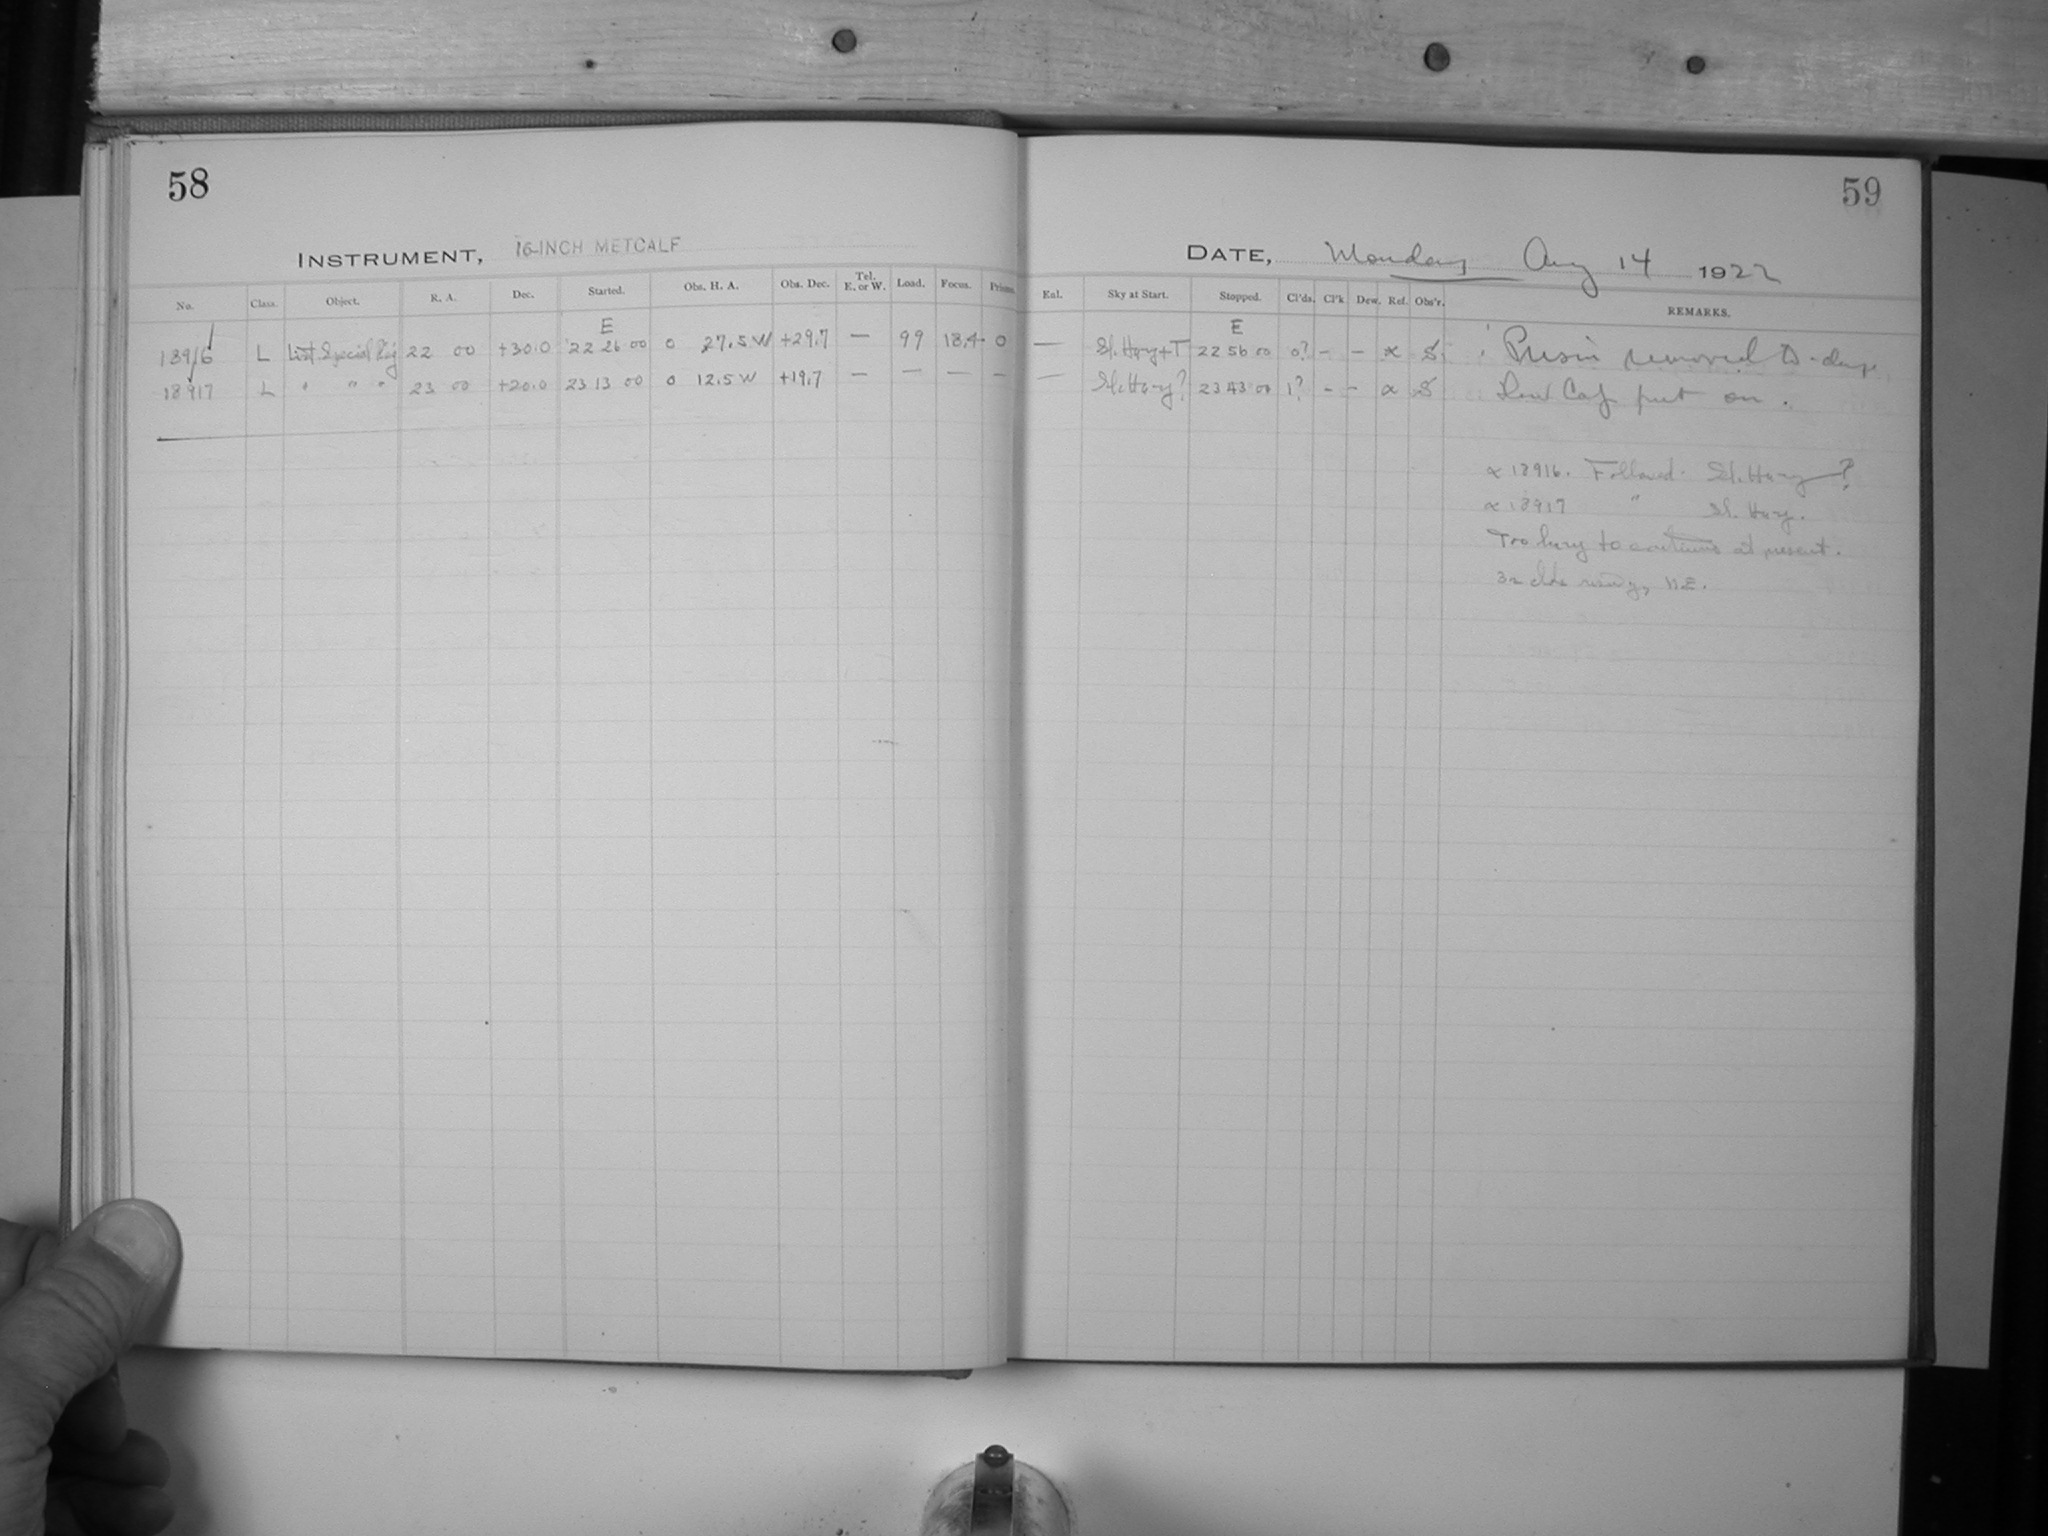 58
INSTRUMENT, 16-INCH METCALF
No. Class. Object. R. A. Dec. Started. Obs. H. A. Obs. Dec. Tel. E. or W. Load. Focus. Prism.
E
13916 L List Special Reg 22 00 +30.0 22 26 00 0 27.5 W +29.7 — 99 18.4 0
13917 L " " " 23 00 +20.0 23 13 00 0 12.5 W +19.7 — — — —
59
DATE, Monday Aug 14 1922
Eal. Sky at Start. Stopped. Cl'ds. Cl'k Dew. Ref. Obs'r. REMARKS.
E
— Sl. Hazy+T 22 56 00 0? - - α S. ' Prism removed to-day
— Sl. Hazy? 23 43 00 1? - - α S Dew Cap put on.
α 13916. Followed. Sl. Hazy?
α 13917 " Sl. Hazy.
Too hazy to continue at present.
rising, NE.